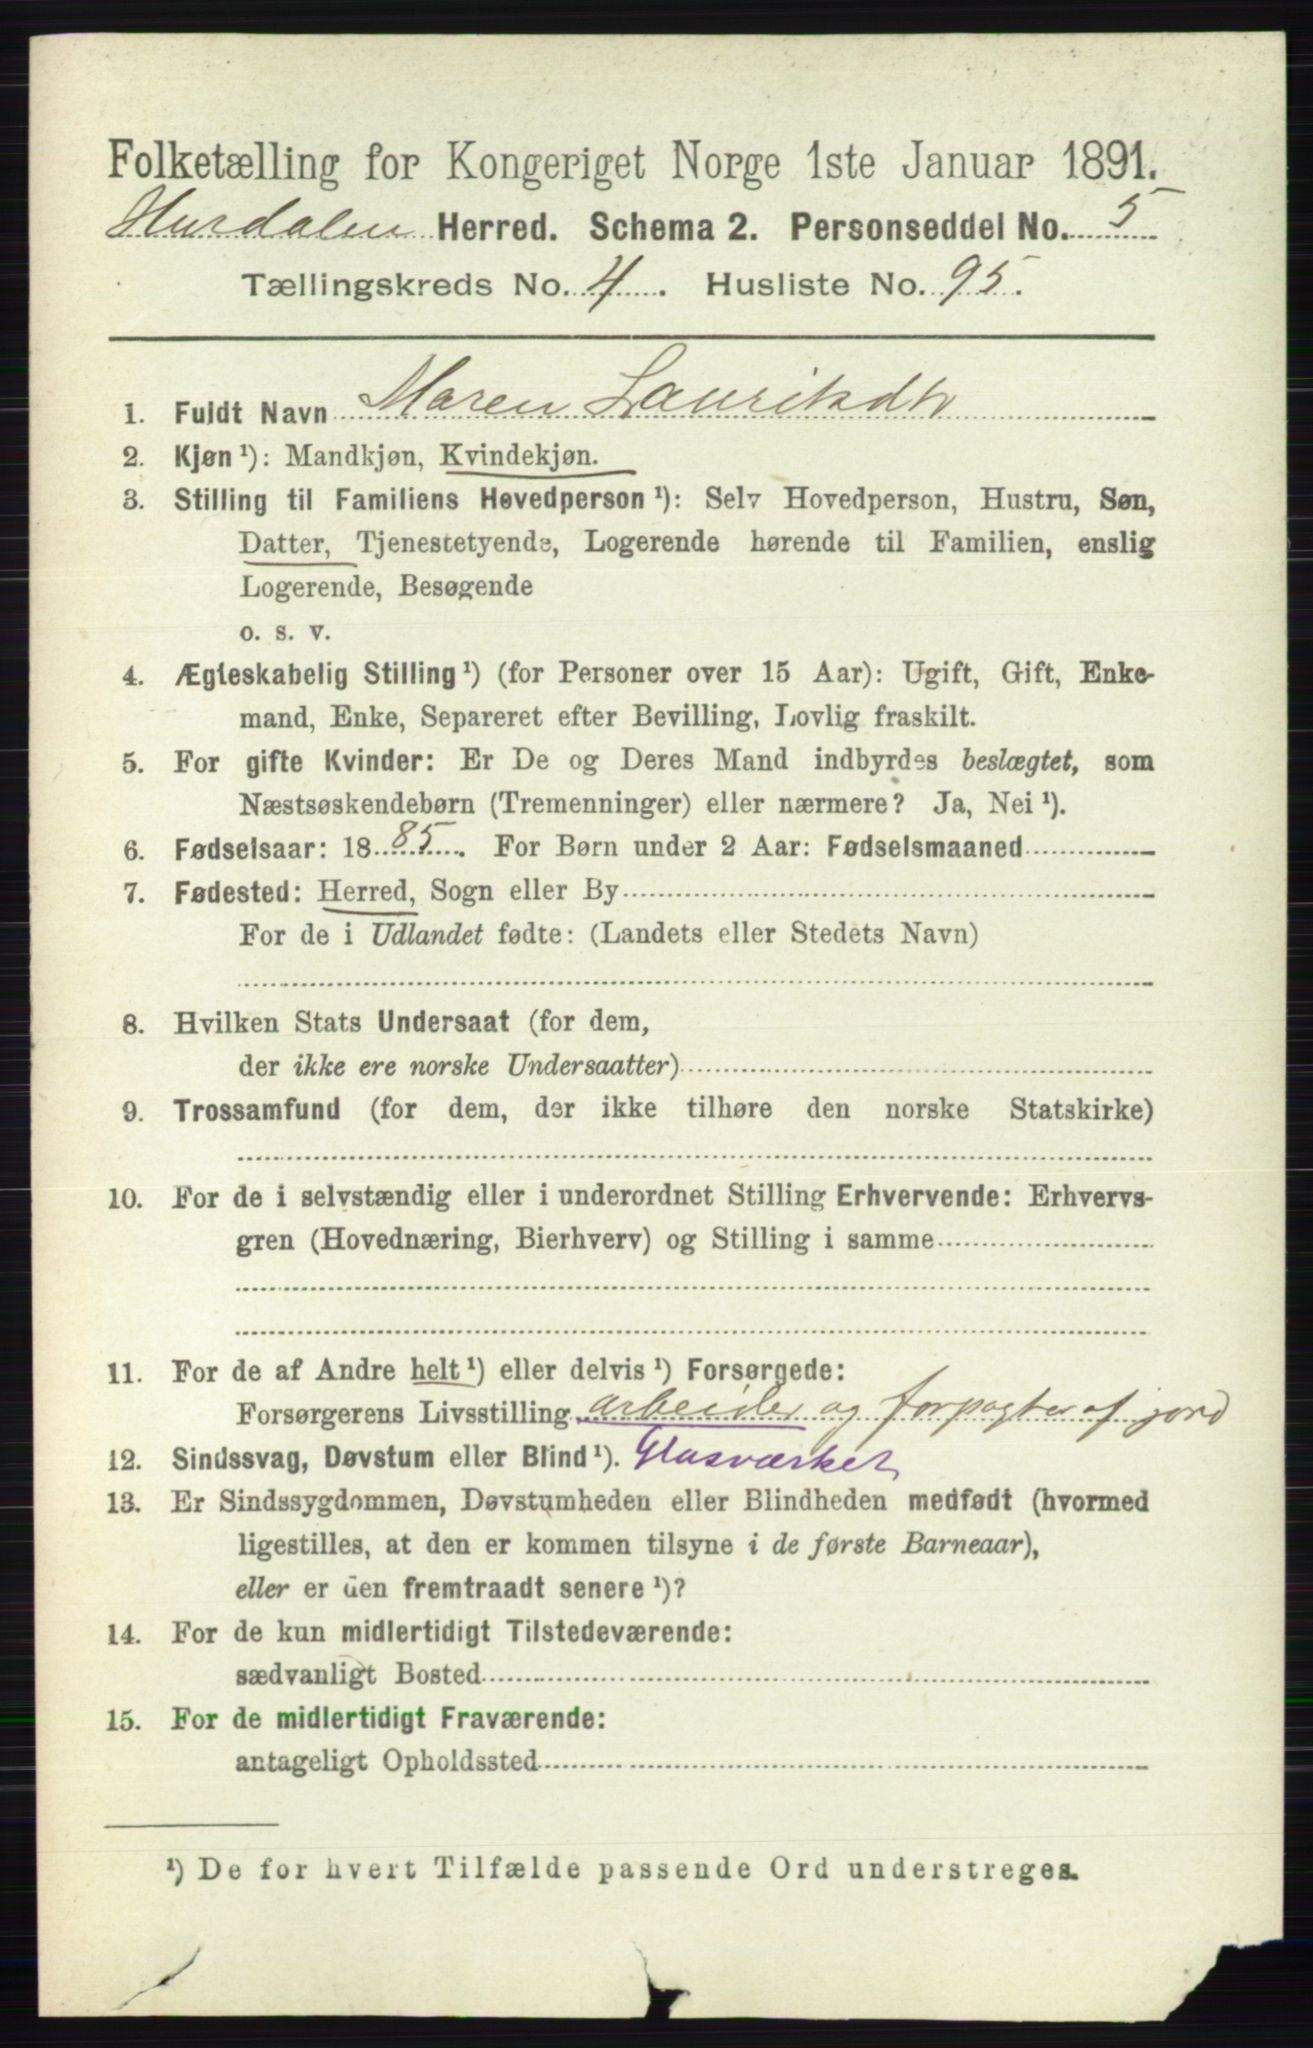 Folketælling for Kongeriget Norge 1ste Januar 1891.
Hurdalen Herred. Schema 2. Personseddel No. 5
Tællingskreds No. 4. Husliste No. 95.
1. Fuldt Navn Maren Lauritsdtr
2. Kjøn ¹): Mandkjøn, Kvindekjøn.
3. Stilling til Familiens Hovedperson ¹): Selv Hovedperson, Hustru, Søn,
Datter, Tjenestetyende, Logerende hørende til Familien, enslig
Logerende, Besøgende
o. s. v.
4. Ægteskabelig Stilling ¹) (for Personer over 15 Aar): Ugift, Gift, Enke-
mand, Enke, Separeret efter Bevilling, Lovlig fraskilt.
5. For gifte Kvinder: Er De og Deres Mand indbyrdes beslægtet, som
Næstsøskendebørn (Tremenninger) eller nærmere? Ja, Nei ¹).
6. Fødselsaar: 1885. For Børn under 2 Aar: Fødselsmaaned
7. Fødested: Herred, Sogn eller By
For de i Udlandet fødte: (Landets eller Stedets Navn)
8. Hvilken Stats Undersaat (for dem,
der ikke ere norske Undersaatter)
9. Trossamfund (for dem, der ikke tilhøre den norske Statskirke)
10. For de i selvstændig eller i underordnet Stilling Erhvervende: Erhvervs-
gren (Hovednæring, Bierhverv) og Stilling i samme
11. For de af Andre helt ¹) eller delvis ¹) Forsørgede:
Forsørgerens Livsstilling arbeider og forpagter af jord
12. Sindssvag, Døvstum eller Blind ¹). Glasværket
13. Er Sindssygdommen, Døvstumheden eller Blindheden medfødt (hvormed
ligestilles, at den er kommen tilsyne i de første Barneaar),
eller er den fremtraadt senere ¹)?
14. For de kun midlertidigt Tilstedeværende:
sædvanligt Bosted
15. For de midlertidigt Fraværende:
antageligt Opholdssted
¹) De for hvert Tilfælde passende Ord understreges.